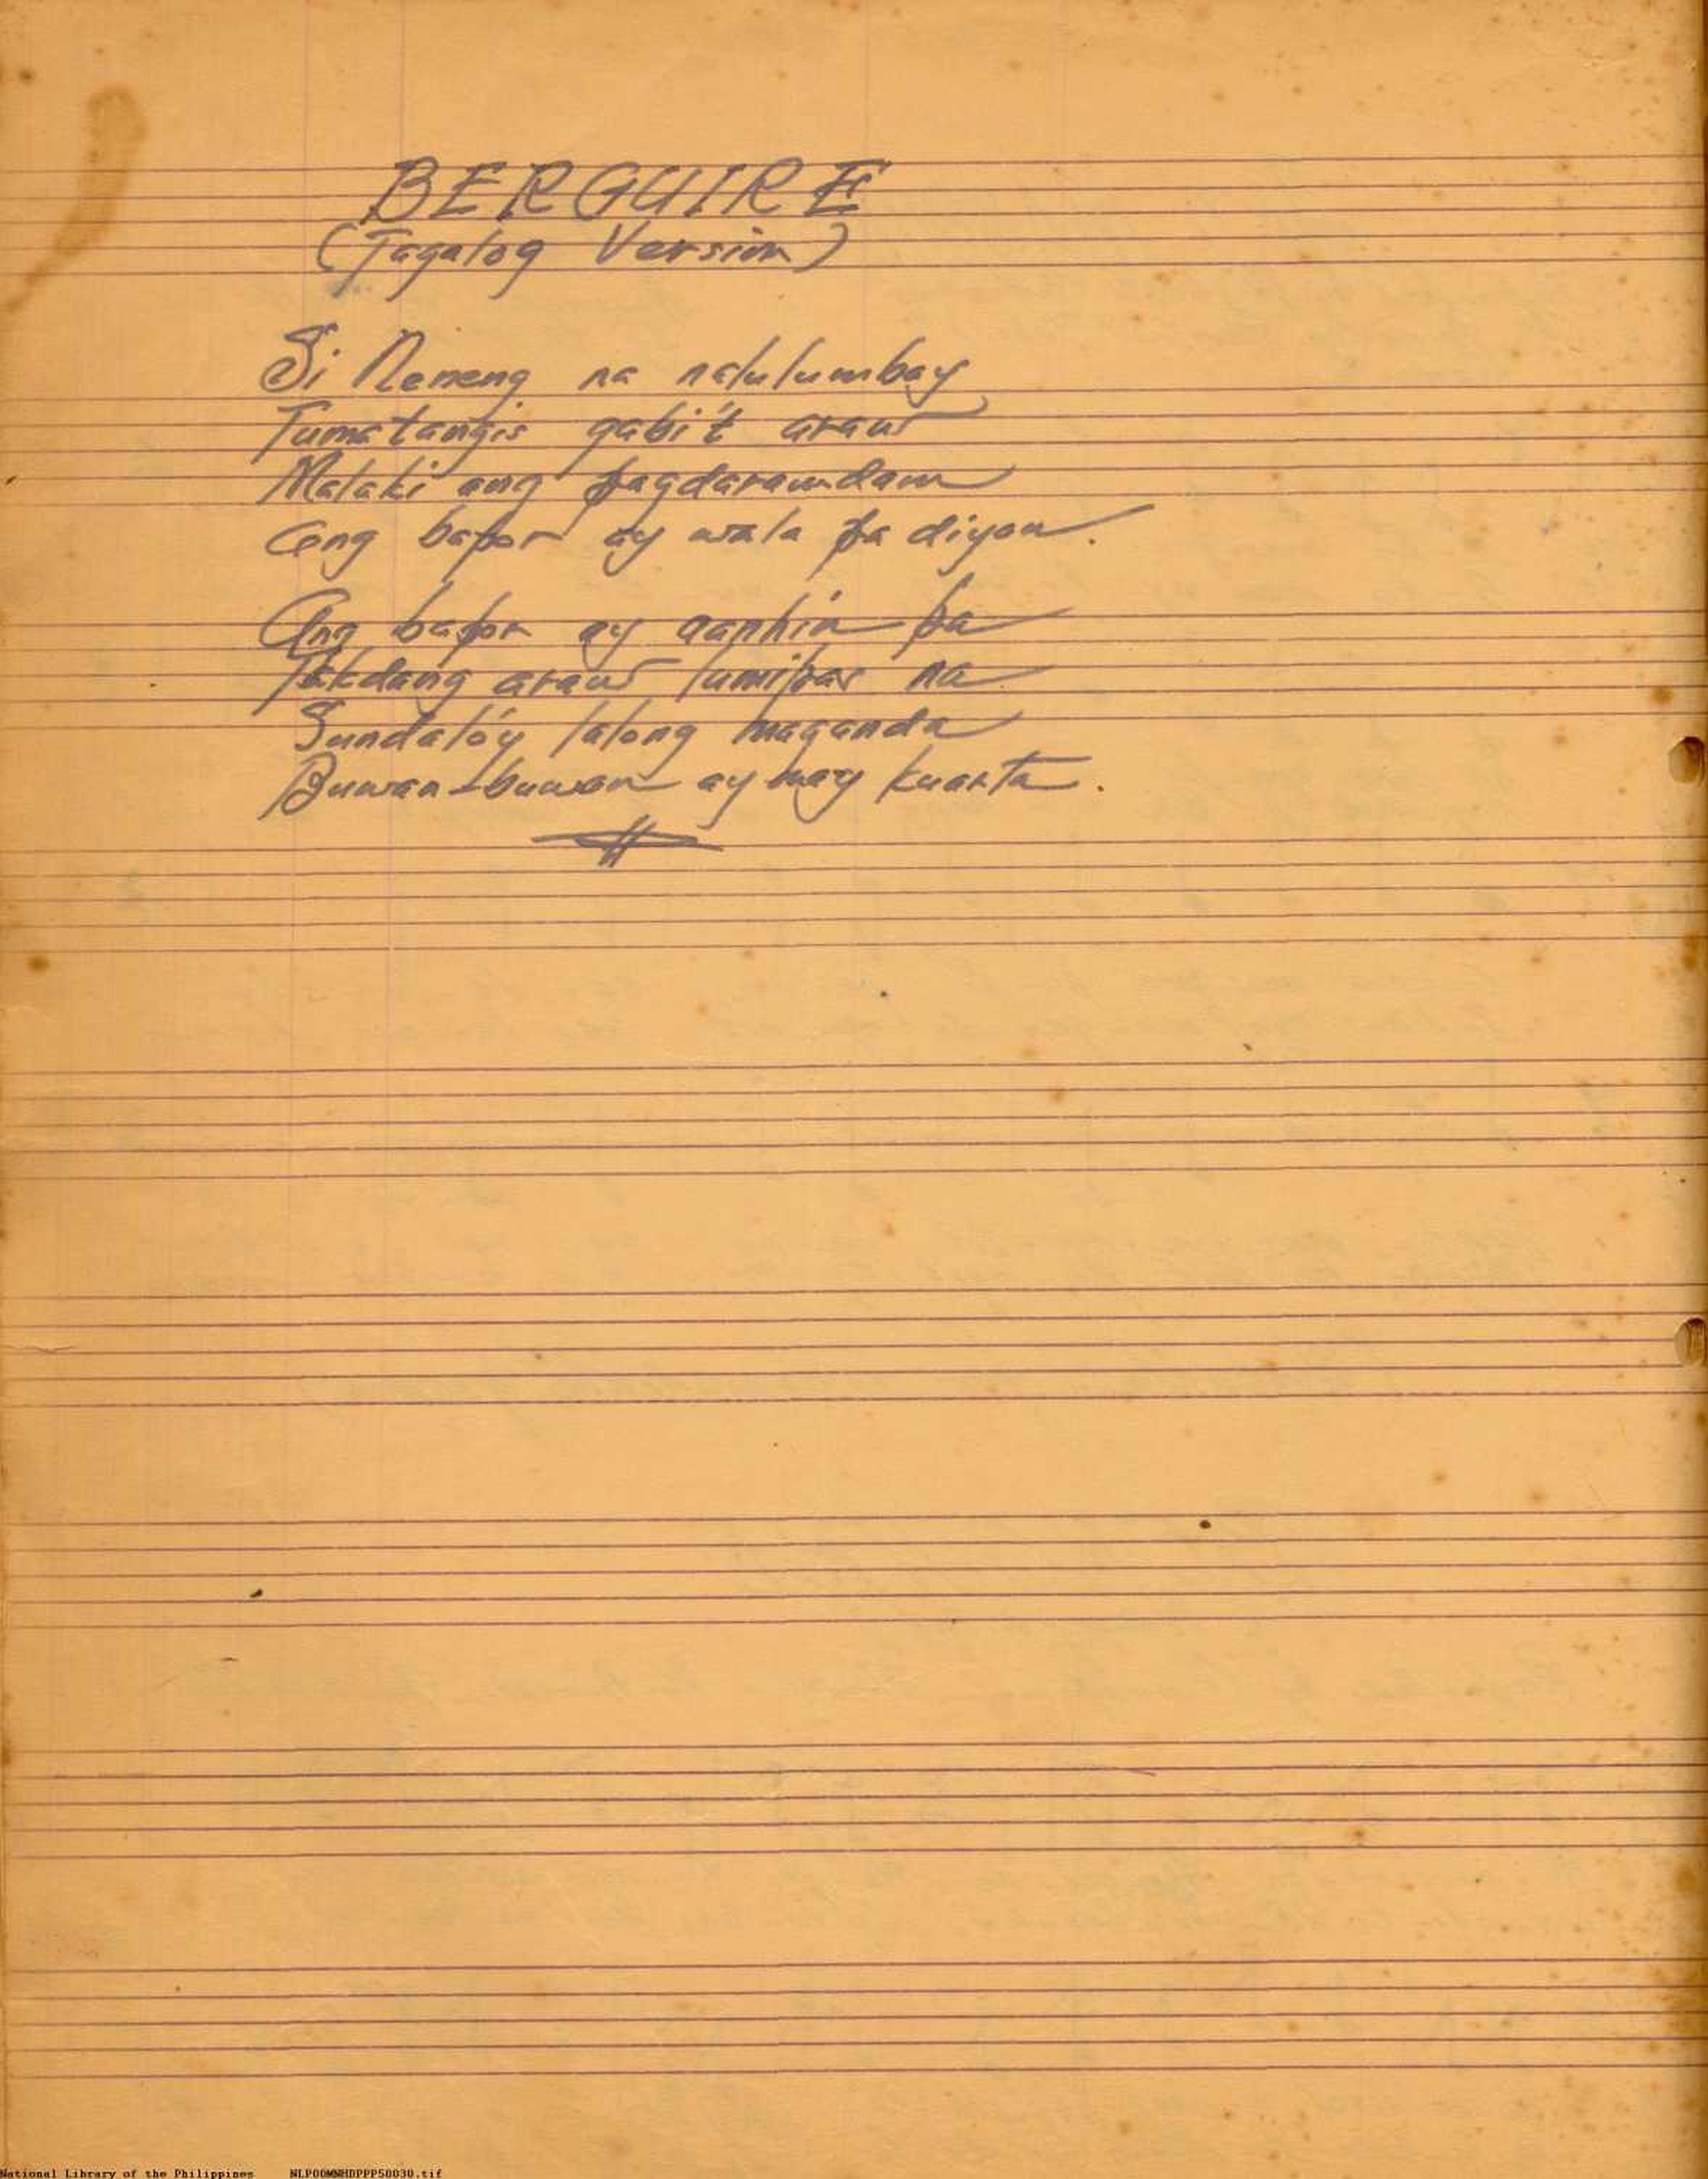 BERGUIRE
(Tagalog Version)
Si Neneng na nalulumbay
Tumatangis gabi't araw
Malaki ang pagdaramdam
Ang bapor ay wala pa diyan.
Ang bapor ay aanhin pa
Takdang araw lumipas na
Sundaló'y lalong maganda
Buwan-buwan ay may kuarta.
National Library of the Philippines NLPOOMNHDPPP50030.tif